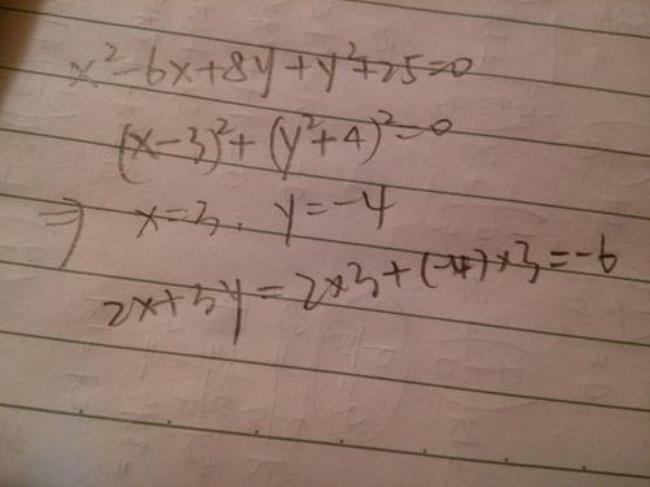 x²-6x+8y+y²+25=0
(x-3)²+(y²+4)²=0
⇒ x=3, y=-4
2x+3y=2×3+(-4)×3=-6